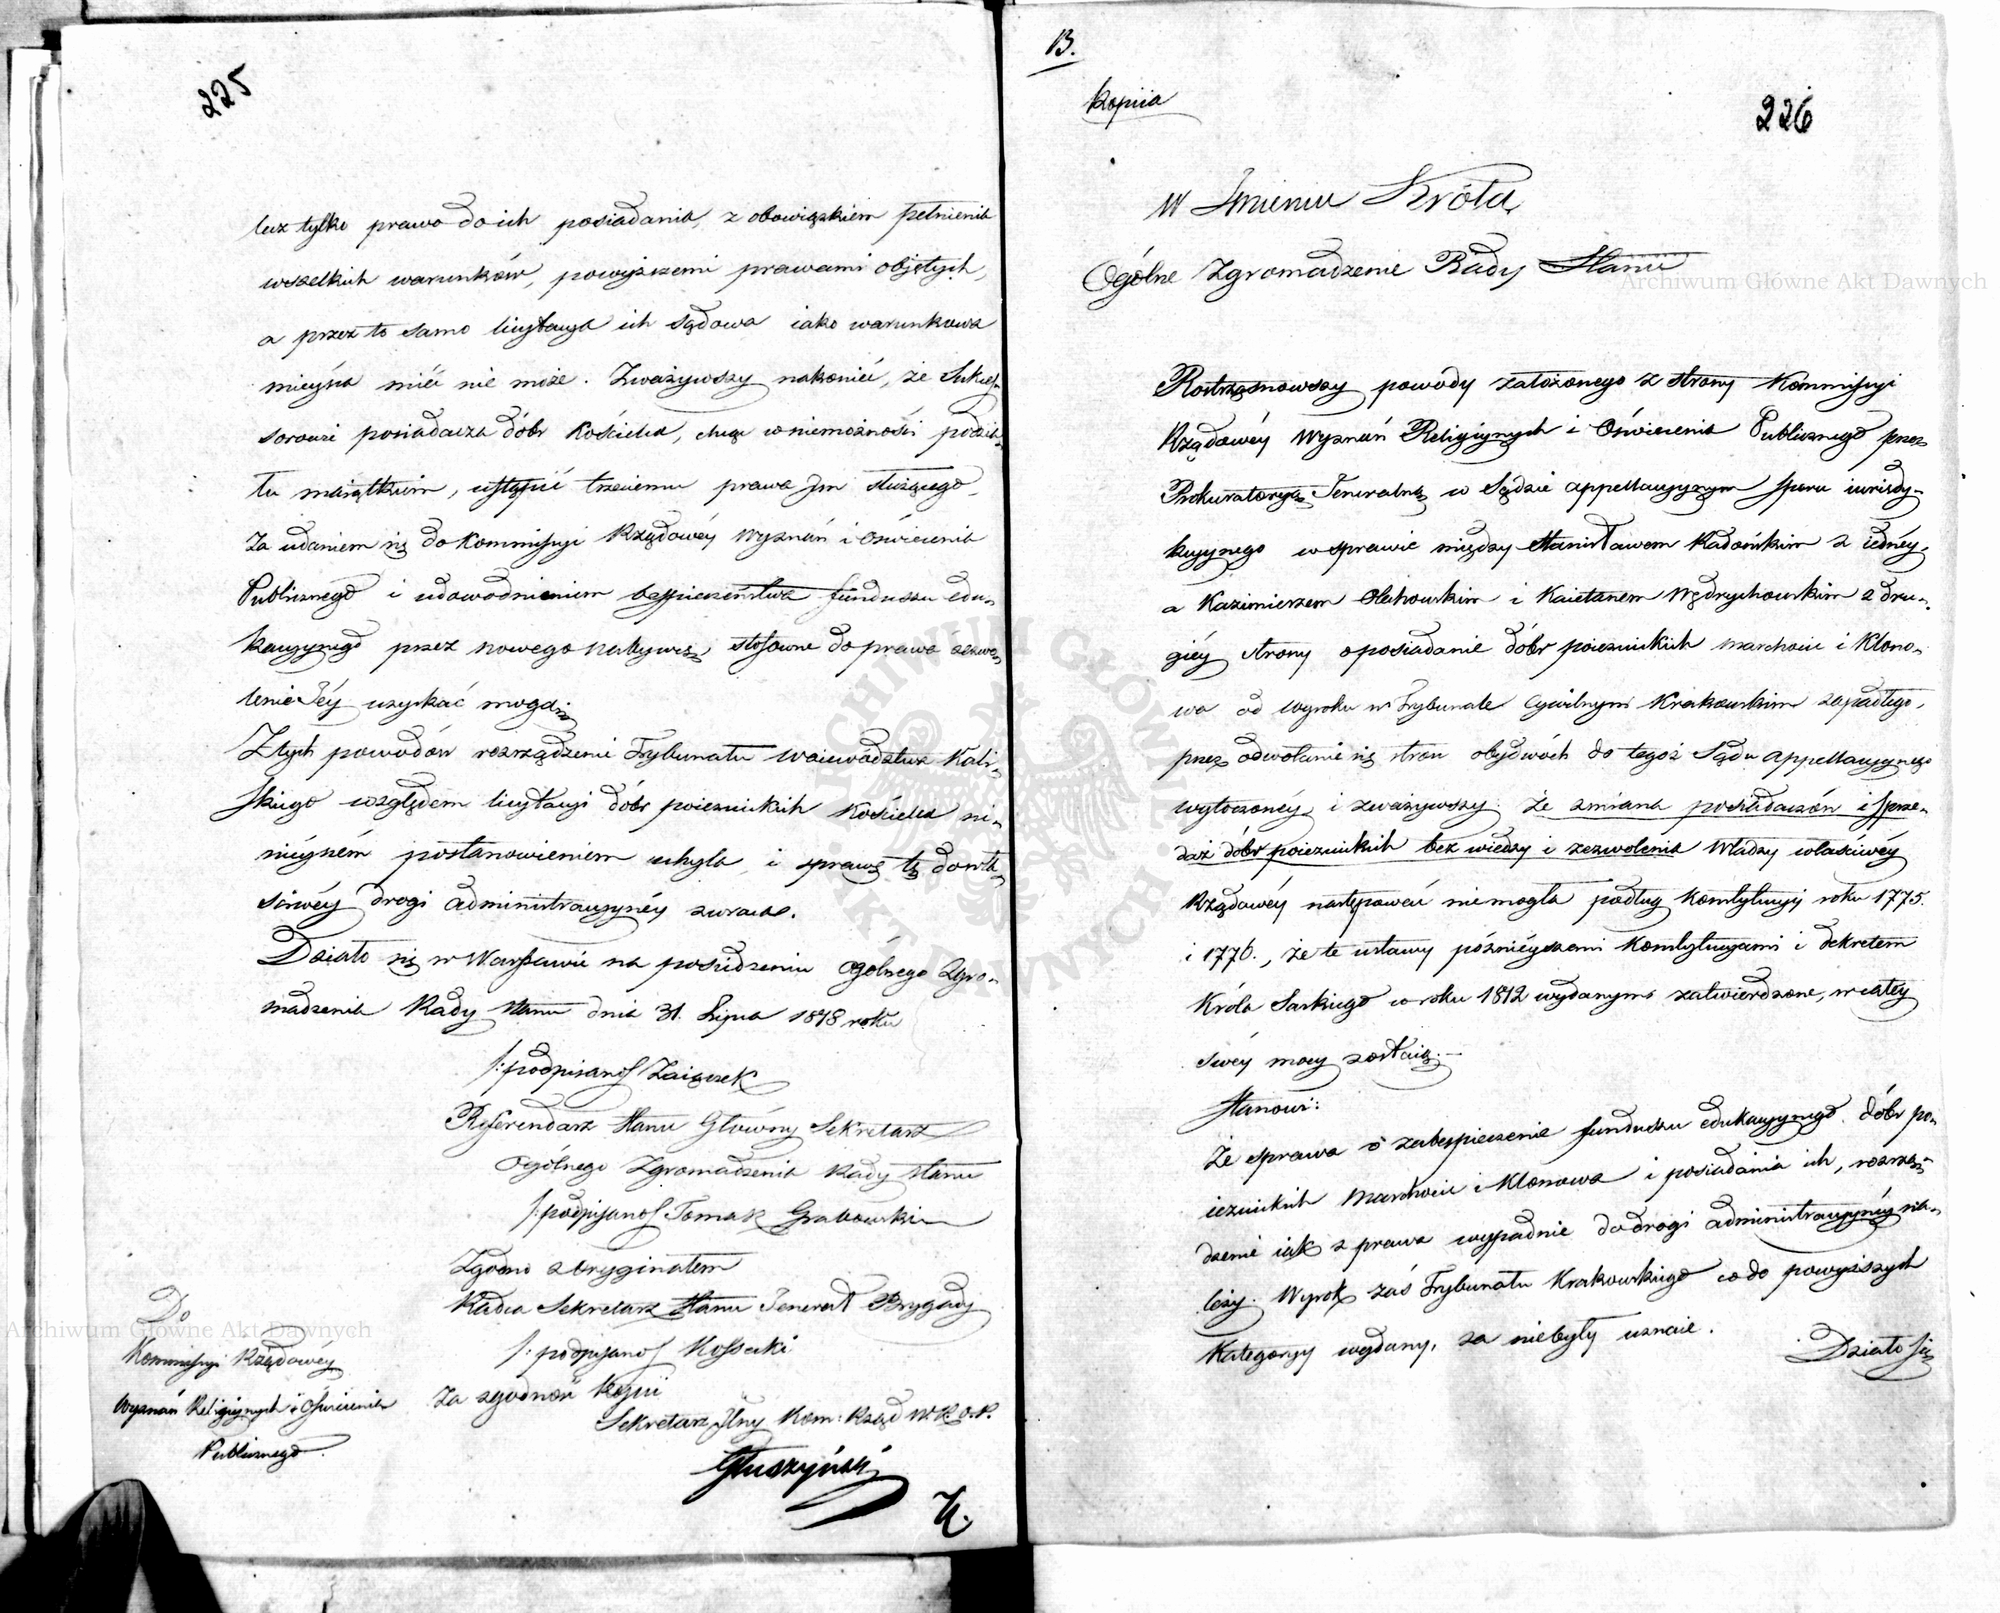 225
lecz tylko prawo do ich posiadania, z obowiązkiem pełnienia
wszelkich warunków, powyższemi prawami objętych,
a przez to samo licytacya ich sądowa iako warunkowa
mieysca mieć nie może. Zważywszy nakoniec, że Sukces-
sorowie posiadacza dóbr Kościelca, chcąc w niemożności podzia-
łu maiątkiem, ustąpić trzeciemu prawa Jm służącego,
za udaniem się do Kommissyi Rządowéy Wyznań i Oświecenia
Publicznego i udowodnieniem bezpieczeństwa funduszu edu-
kacyynego przez nowego nabywcę, stosowne do prawa zezwo-
lenie Jéy uzyskać mogą.
Z tych powodów rozrządzenie Trybunału Woiewództwa Kali-
skiego względem licytacyi dóbr poiezuickich Kościelca ni-
nieyszém postanowieniem uchyla, i sprawę tę do wła-
ściwéy drogi administracyynéy zwraca.
Działo się w Warszawie na posiedzeniu Ogólnego Zgro-
madzenia Rady Stanu dnia 31. Lipca 1818 roku
/:podpisano/ Zaiączek
Referendarz Stanu Główny Sekretarz
Ogólnego Zgromadzenia Rady Stanu
/:podpisano/ Tomasz Grabowski
Zgodno z oryginałem
Radca Sekretarz Stanu Jenerał Brygady
/: podpisano/ Kossecki
Za zgodność kopii
Sekretarz Jlny Kom: Rząd W.R.O.P.
Głuszyński
Do
Kommissyi Rządowéy
Wyznań Religiynych i Oświecenia
Publicznego.
B.
Kopiia
226
W Jmieniu Króla,
Ogólne Zgromadzenie Rady Stanu
Roztrząsnowszy powody założonego z strony Kommissyi
Rządowéy Wyznań Religiynych i Oświecenia Publicznego przez
Prokuratoryą Jeneralną w Sądzie appellacyynym sporu iurisdy-
kcyynego w sprawie między Stanisławem Radońskim z iednéy,
a Kazimierzem Olechowskim i Kaietanem Wędrychowskim z dru-
giéy strony o posiadanie dóbr poiezuickich Marchocic i Klono-
wa od wyroku w Trybunale Cywilnym Krakowskim zapadłego,
przez odwołanie się stron obydwóch do tegoż Sądu appellacyynego
wytoczonéy i zważywszy: że zmiana posiadaczów i sprze-
daż dóbr poiezuickich bez wiedzy i zezwolenia Władzy właściwéy
Rządowéy następować nie mogła podług Konstytucyy roku 1775.
i 1776., że te ustawy późnieyszemi Konstytucyami i dekretem
Króla Saskiego w roku 1812 wydanym zatwierdzone, w całéy
swéy mocy zostaią. –
Stanowi:
Że sprawa o zabezpieczenie funduszu edukacyynego dóbr po-
iezuickich Marchocic i Klonowa i posiadania ich, rozrzą-
dzenie iak z prawa wypadnie do drogi administracyynéy na-
leży. Wyrok zaś Trybunału Krakowskiego co do powyższych
Kategoryy wydany, za niebyły uznaie.
Działo się
Archiwum Główne Akt Dawnych
Archiwum Główne Akt Dawnych
ARCHIWUM GŁÓWNE AKT DAWNYCH